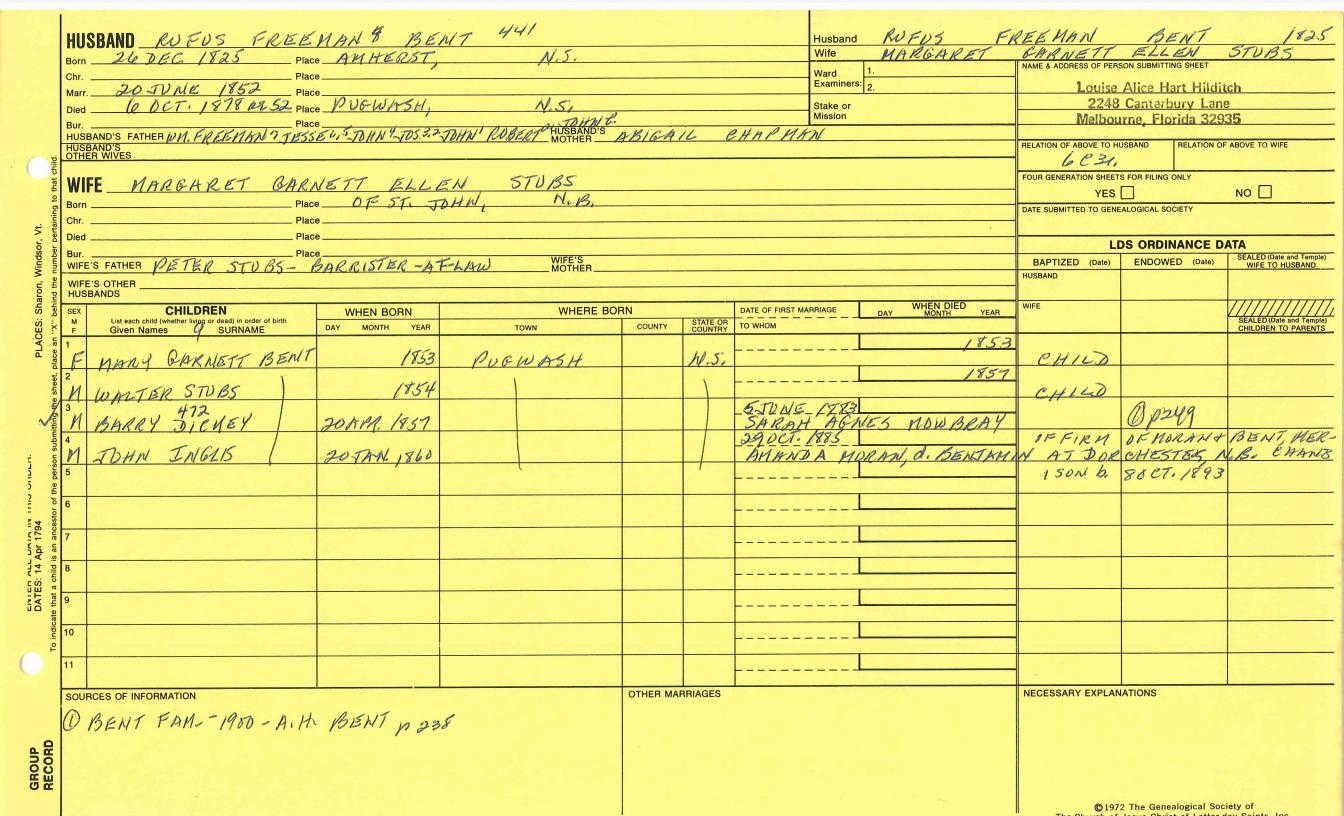 HUSBAND RUFUS FREEMAN 8 BENT 441
Born 26 DEC 1825 Place AMHERST, N.S.
Chr. Place
Marr. 20 JUNE 1852 Place
Died 6 OCT. 1878 AE 52 Place PUGWASH, N.S.
Bur. Place
HUSBAND'S FATHER WM. FREEMAN 7 JESSE 6,5 JOHN 4 JOS 3,2 JOHN 1 ROBERT JOHN HUSBAND'S MOTHER ABIGAIL CHAPMAN
HUSBAND'S OTHER WIVES
WIFE MARGARET GARNETT ELLEN STUBS
Born Place OF ST. JOHN, N.B.
Chr. Place
Died Place
Bur. Place
WIFE'S FATHER PETER STUBS - BARRISTER-AT-LAW WIFE'S MOTHER
WIFE'S OTHER HUSBANDS
Husband RUFUS FREEMAN BENT 1825
Wife MARGARET GARNETT ELLEN STUBS
Ward Examiners: 1.
2.
Stake or Mission
NAME & ADDRESS OF PERSON SUBMITTING SHEET
Louise Alice Hart Hilditch
2248 Canterbury Lane
Melbourne, Florida 32935
RELATION OF ABOVE TO HUSBAND RELATION OF ABOVE TO WIFE
6C3r.
FOUR GENERATION SHEETS FOR FILING ONLY
YES NO
DATE SUBMITTED TO GENEALOGICAL SOCIETY
LDS ORDINANCE DATA
BAPTIZED (Date) ENDOWED (Date) SEALED (Date and Temple) WIFE TO HUSBAND
HUSBAND
WIFE
SEALED (Date and Temple) CHILDREN TO PARENTS
SEX M F CHILDREN WHEN BORN WHERE BORN DATE OF FIRST MARRIAGE WHEN DIED
List each child (whether living or dead) in order of birth
Given Names 9 SURNAME DAY MONTH YEAR TOWN COUNTY STATE OR COUNTRY TO WHOM DAY MONTH YEAR
1 F MARY GARNETT BENT 1853 PUGWASH N.S. 1853 CHILD
2 M WALTER STUBS 1854 1857 CHILD
3 M BARRY DICKEY 472 20 APR. 1857 5 JUNE 1883 SARAH AGNES MOWBRAY ① p249
4 M JOHN INGLIS 20 JAN. 1860 29 OCT. 1885 OF FIRM OF MORAN & BENT, MER-
AMANDA MORAN, d. BENJAMIN AT DORCHESTER, N.B. CHANTS
5 1 SON b. 8 OCT. 1893
6
7
8
9
10
11
SOURCES OF INFORMATION OTHER MARRIAGES NECESSARY EXPLANATIONS
① BENT FAM. - 1900 - A.H. BENT p 238
©1972 The Genealogical Society of
The Church of Jesus Christ of Latter-day Saints, Inc.
PLACES: Sharon, Windsor, Vt.
ENTER ALL DATA IN THIS ORDER:
DATES: 14 Apr 1794
To indicate that a child is an ancestor of the person submitting the sheet, place an "X" behind the number pertaining to that child.
GROUP RECORD